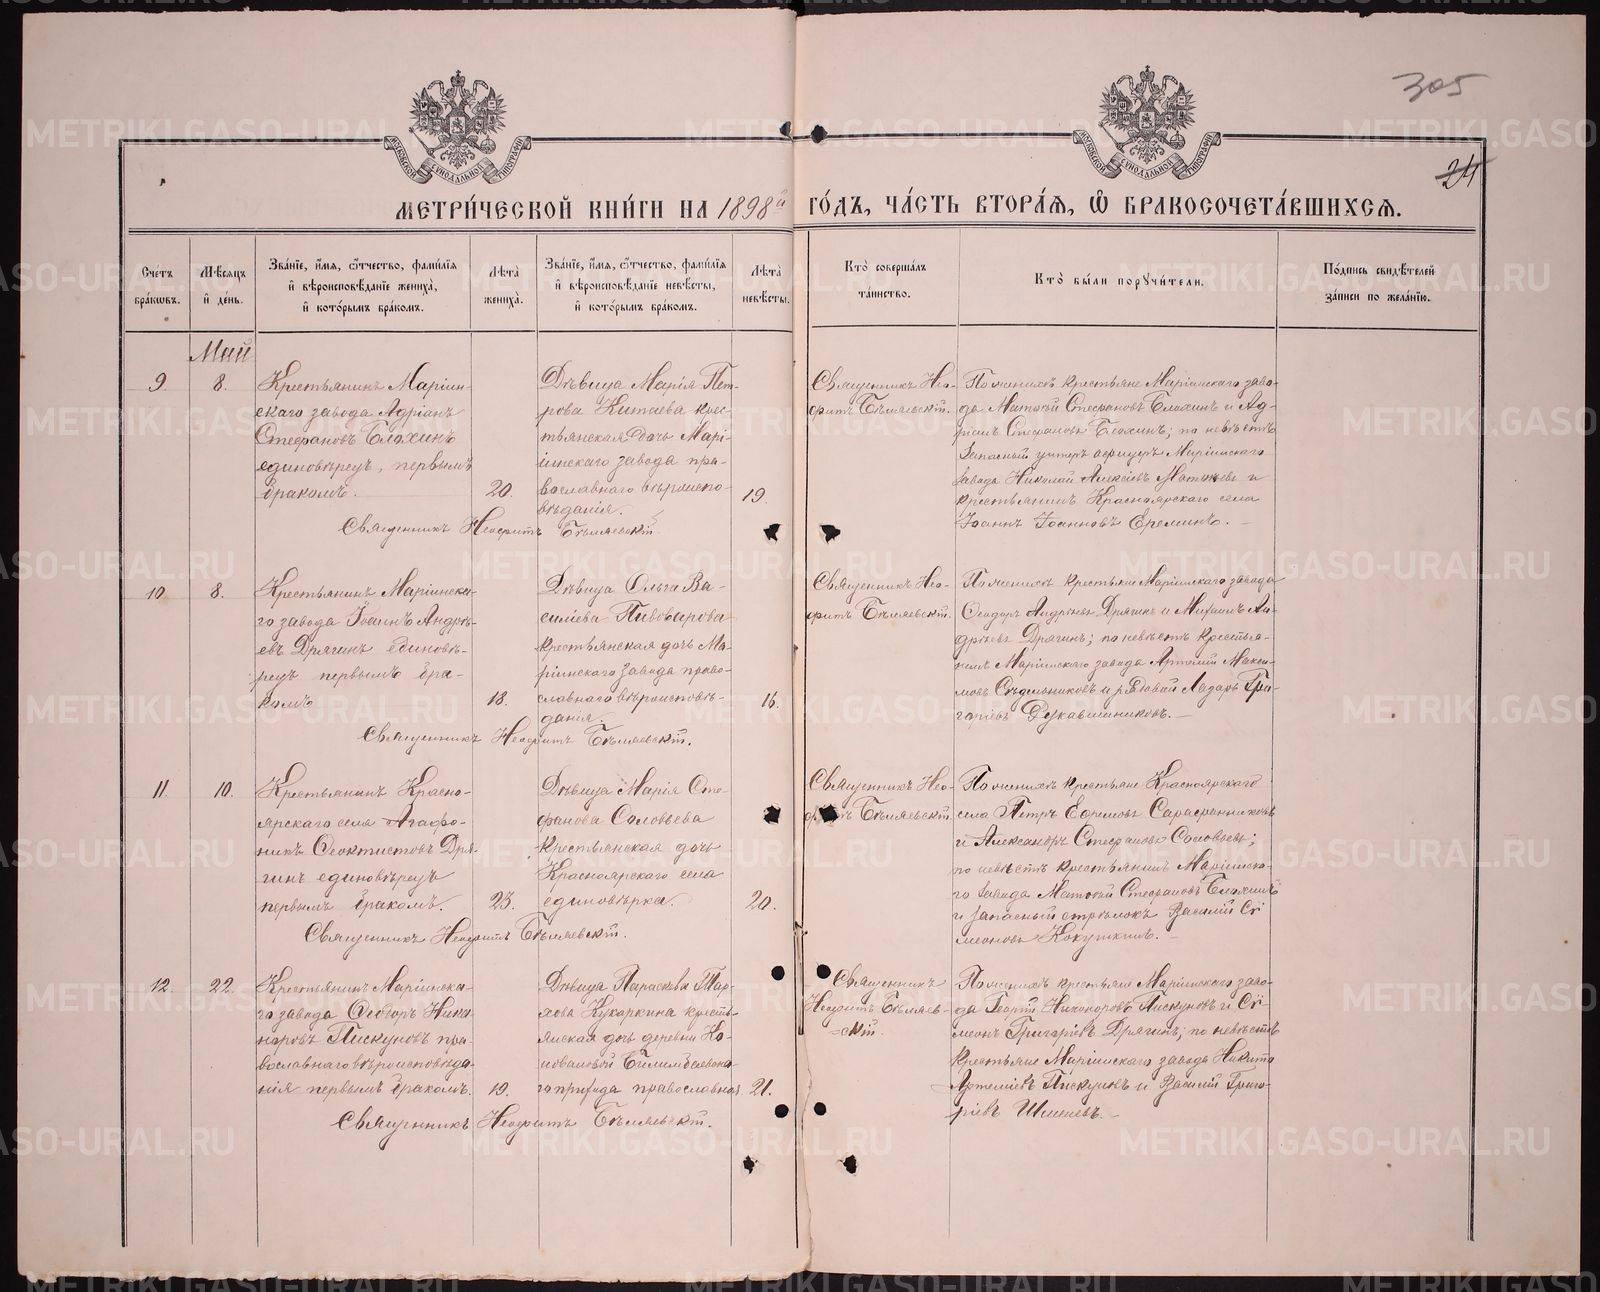 305
24
МЕТРИ́ЧЕСКОЙ КНИ́ГИ НА 1898й ГО́ДЪ, ЧА́СТЬ ВТОРА́Я, Ѽ БРАКОСОЧЕТА́ВШИХСЯ.
Сче́тъ бра́ковъ.
Мѣ́сяцъ и҆ де́нь.
Зва́нїе, и҆́мя, ѻ҆́тчество, фами́лїя и҆ вѣроисповѣ́данїе жениха̀, и҆ кото́рымъ бра́комъ.
Лѣ́та жениха̀.
Зва́нїе, и҆́мя, ѻ҆́тчество, фами́лїя и҆ вѣроисповѣ́данїе невѣ́сты, и҆ кото́рымъ бра́комъ.
Лѣ́та невѣ́сты.
Кто̀ соверша́лъ та́инство.
Кто̀ бы́ли порꙋчи́тели.
По́дпись свидѣ́телей за́писи по жела́нїю.
Май
9.
8.
Крестьянинъ Маріин-
скаго завода Адріанъ
Стефановъ Блохинъ
единовѣрецъ, первымъ
бракомъ.
20.
Дѣвица Марія Пет-
рова Китаева крес-
тьянская дочь Марі-
инскаго завода пра-
вославнаго вѣроиспо-
вѣданія.
19.
Священникъ Нео-
фитъ Бѣляевскій.
По женихѣ крестьяне Маріинскаго заво-
да Матвѣй Стефановъ Блохинъ и Ад-
ріанъ Стефановъ Блохинъ; по невѣстѣ
Запасный унтеръ офицеръ Маріинскаго
завода Николай Алексіевъ Матвѣевъ и
крестьянинъ Красноярскаго села
Іоаннъ Іоанновъ Ереминъ.
Священникъ Неофитъ Бѣляевскій.
10
8.
Крестьянинъ Маріинска-
го завода Іоаннъ Андрѣ-
евъ Дрягинъ единовѣ-
рецъ первымъ бра-
комъ
18.
Дѣвица Ольга Ва-
силіева Пивоварова
крестьянская дочь Ма-
ріинскаго завода право-
славнаго вѣроисповѣ-
данія.
16.
Священникъ Нео-
фитъ Бѣляевскій.
По женихѣ крестьяне Маріинскаго завода
Ѳеодоръ Андрѣевъ Дрягинъ и Михаилъ Ан-
дрѣевъ Дрягинъ; по невѣстѣ крестья-
нинъ Маріинскаго завода Артемій Макси-
мовъ Сѣдельниковъ и рядовой Лазарь Гри-
горіевъ Рукавишниковъ.
Священникъ Неофитъ Бѣляевскій.
11.
10.
Крестьянинъ Красно-
ярскаго села Агафо-
никъ Ѳеоктистовъ Дря-
гинъ единовѣрецъ
первымъ бракомъ.
23.
Дѣвица Марія Сте-
фанова Соловьева
Крестьянская дочь
Красноярскаго села
единовѣрка.
20.
Священникъ Нео-
фитъ Бѣляевскій.
По женихѣ крестьяне Красноярскаго
села Петръ Ефимовъ Сарафанниковъ
и Александръ Стефановъ Соловьевъ;
по невѣстѣ крестьянинъ Маріинска-
го завода Матвѣй Стефановъ Блохинъ
и запасный стрѣлокъ Василій Сѵ-
меоновъ Кокушкинъ.
Священникъ Неофитъ Бѣляевскій.
12.
22.
Крестьянинъ Маріинска-
го завода Ѳеодоръ Ника-
норовъ Пискуновъ пра-
вославнаго вѣроисповѣда-
нія первымъ бракомъ.
19.
Дѣвица Параскева Тар-
хова Кухаркина кресть-
янская дочь деревни Ко-
новаловой Билимбаевска-
го прихода православная
21.
Священникъ
Неофитъ Бѣляев-
скій.
По женихѣ крестьяне Маріинскаго заво-
да Георгій Никоноровъ Пискуновъ и Сѵ-
меонъ Григоріевъ Дрягинъ; по невѣстѣ
крестьяне Маріинскаго завода Никита
Артеміевъ Пискуновъ и Василій Григо-
ріевъ
Священникъ Неофитъ Бѣляевскій.
METRIKI.GASO-URAL.RU